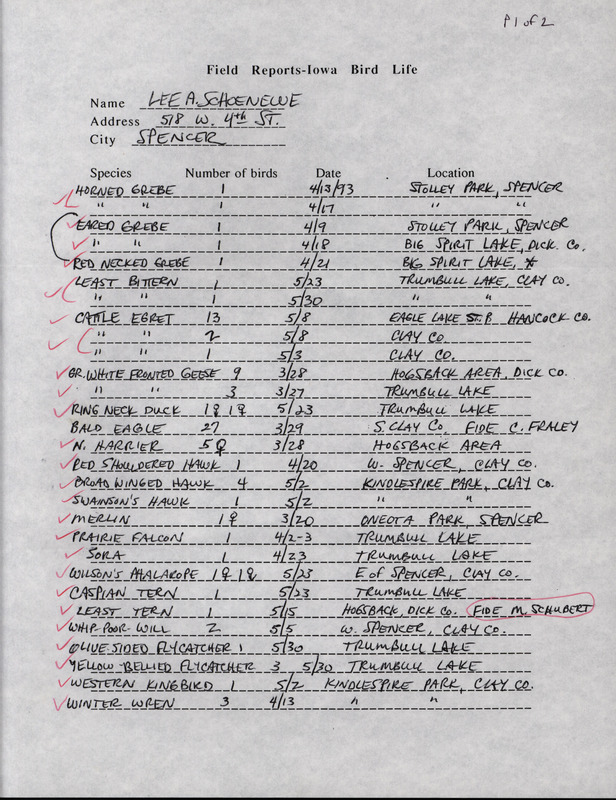 P 1 of 2
Field Reports-Iowa Bird Life
Name LEE A. SCHOENEWE
Address 518 W. 4th ST.
City SPENCER
Species Number of birds Date Location
HORNED GREBE 1 4/13/93 STOLLEY PARK, SPENCER
" " 1 4/17 " "
EARED GREBE 1 4/9 STOLLEY PARK, SPENCER
" " 1 4/18 BIG SPIRIT LAKE, DICK. CO.
RED NECKED GREBE 1 4/21 BIG SPIRIT LAKE, *
LEAST BITTERN 1 5/23 TRUMBULL LAKE, CLAY CO.
" " 1 5/30 " "
CATTLE EGRET 13 5/8 EAGLE LAKE ST. P HANCOCK CO.
" " 2 5/8 CLAY CO.
" " 1 5/3 CLAY CO.
GR. WHITE FRONTED GEESE 9 3/28 HOGSBACK AREA, DICK CO.
" " 3 3/27 TRUMBULL LAKE
RING NECK DUCK 1 1♀ 5/23 TRUMBULL LAKE
BALD EAGLE 27 3/29 S. CLAY CO. FIDE C. FRALEY
N. HARRIER 5♀ 3/28 HOGSBACK AREA
RED SHOULDERED HAWK 1 4/20 W. SPENCER, CLAY CO.
BROAD WINGED HAWK 4 5/2 KINDLESPIRE PARK, CLAY CO.
SWAINSON'S HAWK 1 5/2 " "
MERLIN 1♀ 3/20 ONEOTA PARK, SPENCER
PRAIRIE FALCON 1 4/2-3 TRUMBULL LAKE
SORA 1 4/23 TRUMBULL LAKE
WILSON'S PHALAROPE 1 1 5/23 E of SPENCER, CLAY CO.
CASPIAN TERN 1 5/23 TRUMBULL LAKE
LEAST TERN 1 5/15 HOGSBACK, DICK CO. FIDE M. SCHUBERT
WHIP-POOR-WILL 2 5/5 W. SPENCER, CLAY CO.
OLIVE-SIDED FLYCATCHER 1 5/30 TRUMBULL LAKE
YELLOW-BELLIED FLYCATCHER 3 5/30 TRUMBULL LAKE
WESTERN KINGBIRD 1 5/2 KINDLESPIRE PARK, CLAY CO.
WINTER WREN 3 4/13 " "